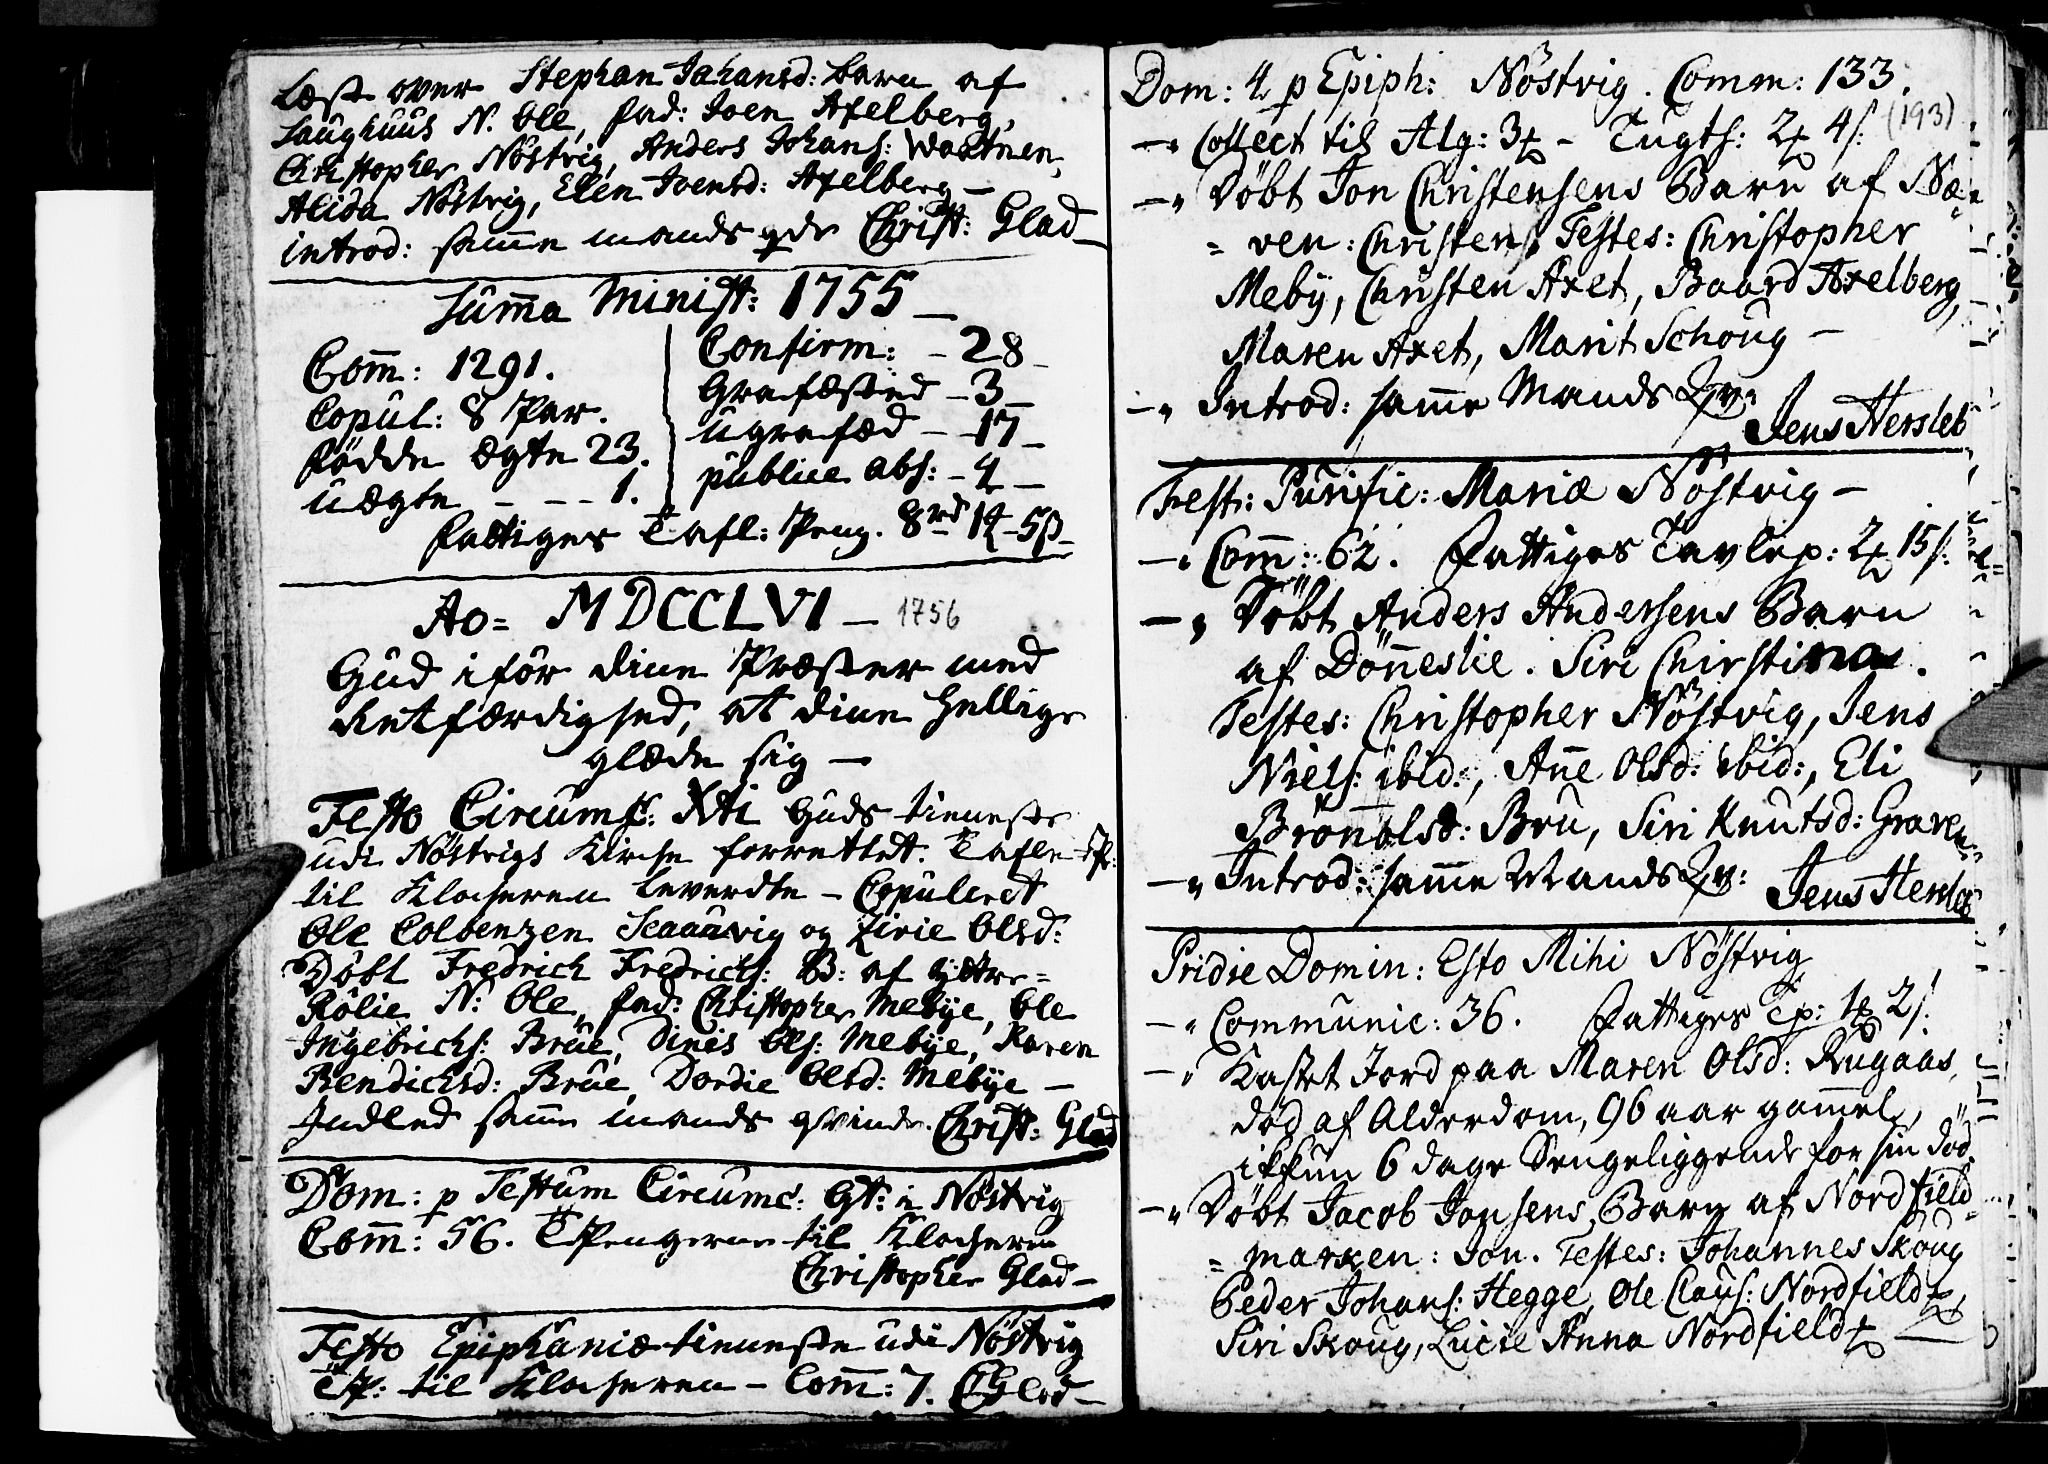 Læst over Stephan Johansd: barn af
Laughuus N. Ole, fad: Joen Axelberg,
Christopher Nöstvig, Anders Johans:
Alida Nöstvig, Elen Joensd: Axelberg –
introd: samme mands qde Christ: Glad –
Summa Minist: 1755 –
Com̄: 1291.
Copul: 8 Par.
födde ægte 23.
uægte – – – 1.
Confirm: – 28 –
Grafæsted – 3 –
ugrafæd – – 17 –
publice abs: – 4 –
fattiges Tafl: Peng. 8rd 1 – 5ß –
Ao = MDCCLVI – 1756
Gud iför dine Præster med
Retfærdighed, at dine hellige
glæde sig –
Festo Circumc: Xti Guds tieneste
udi Nöstvigs Kirche forrettet. Tafle =
til Klocheren leverdte – Copuleret
Ole Colbenzen og Zirie Olsd:
Döbt Fredrich Fredrichs: B: af
Rölie N: Ole, fad: Christopher Mebye, Ole
Ingebrichs: Brüe, Dines Ols: Mebye, Karen
Bendichsd: Brüe, Dordie Olsd: Mebye –
Indled samme mands qvinde. Christ: Glad
Dom: p Festum Circumc: Gt: i Nöstvig
Com̄: 56. TPengerne til Klocheren
Christopher Glad –
Festo Epiphaniæ tieneste udi Nöstvig
Tp: til Klocheren – Com̄: 7. CGlad –
Dom: 4 p Epiph: Nöstvig. Comm: 133.
(193)
–" Collect til Alg: 3 – Tugts: 2 4ß.
–" Döbt Jon Christensens Barn af Næ=
= ven: Christen, Testes: Christopher
Meby, Christen Axet, Baard Axelberg,
Maren Axet, Marit Schoug –
–" Introd: samme Mands Qv:
Jens Hersleb
Fest: Purific: Mariæ Nöstvig –
–" Com̄: 62. Fattiges Tavlep: 2 15ß.
–" Döbt Anders Andersens Barn
af Dönneslie. Siri Chirstina.
Testes: Christopher Nöstvig, Jens
Niels: ibid:, An̄e Olsd: ibid:, Eli
Bronolsd: Bru, Siri Knutsd: Graven
–" Introd: samme Mands Qv:
Jens Hersleb
Pridie Domin: Esto Mihi Nöstvig
–" Communic: 36. Fattiges Tp: 1 2ß.
–" Kastet Jord paa Maren Olsd: Rugaas,
död af Alderdom, 96 aar gam̄el,
ikkun 6 dage Sengeliggende for sin död.
–" Döbt Jacob Jonsens Barn af Nordfield=
= marken: Jon. Testes: Johannes Skoug
Peder Johans: Hegge, Ole Claus: Nordfield,
Siri Skoug, Lucie Anna Nordfield